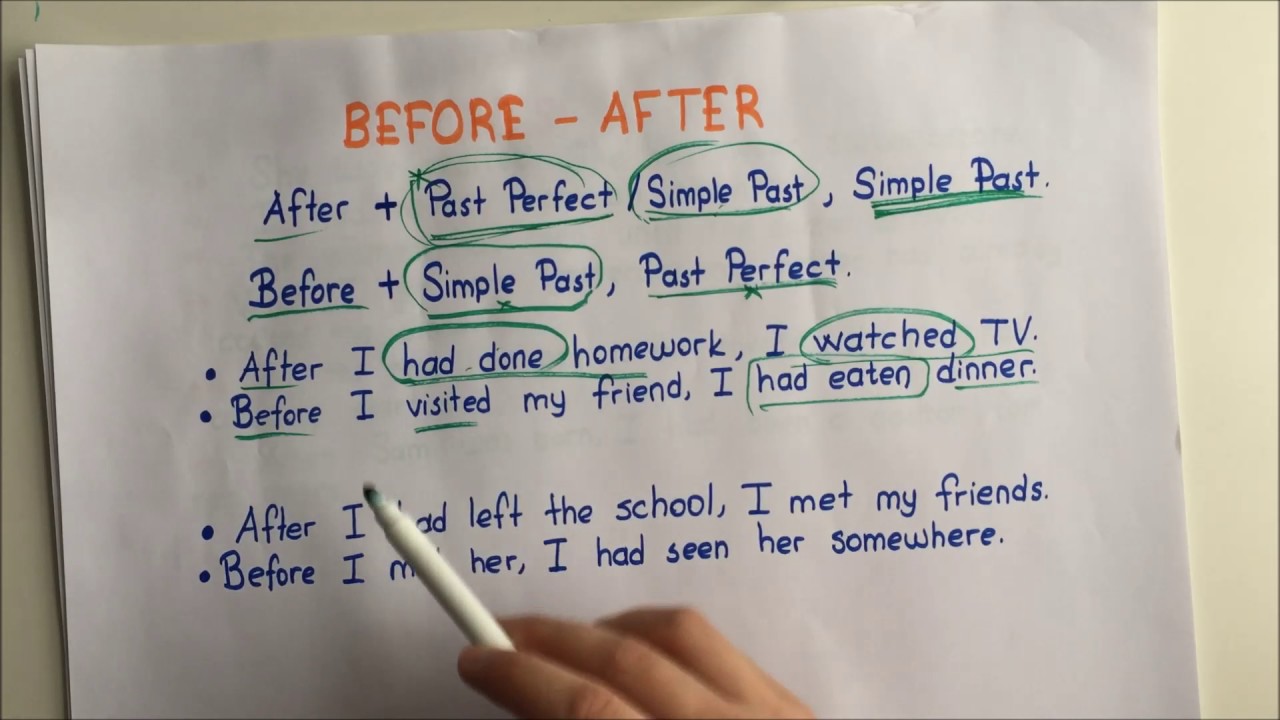 BEFORE - AFTER
After + Past Perfect / Simple Past, Simple Past.
Before + Simple Past, Past Perfect.
• After I had done homework, I watched TV.
• Before I visited my friend, I had eaten dinner.
• After I had left the school, I met my friends.
• Before I her, I had seen her somewhere.